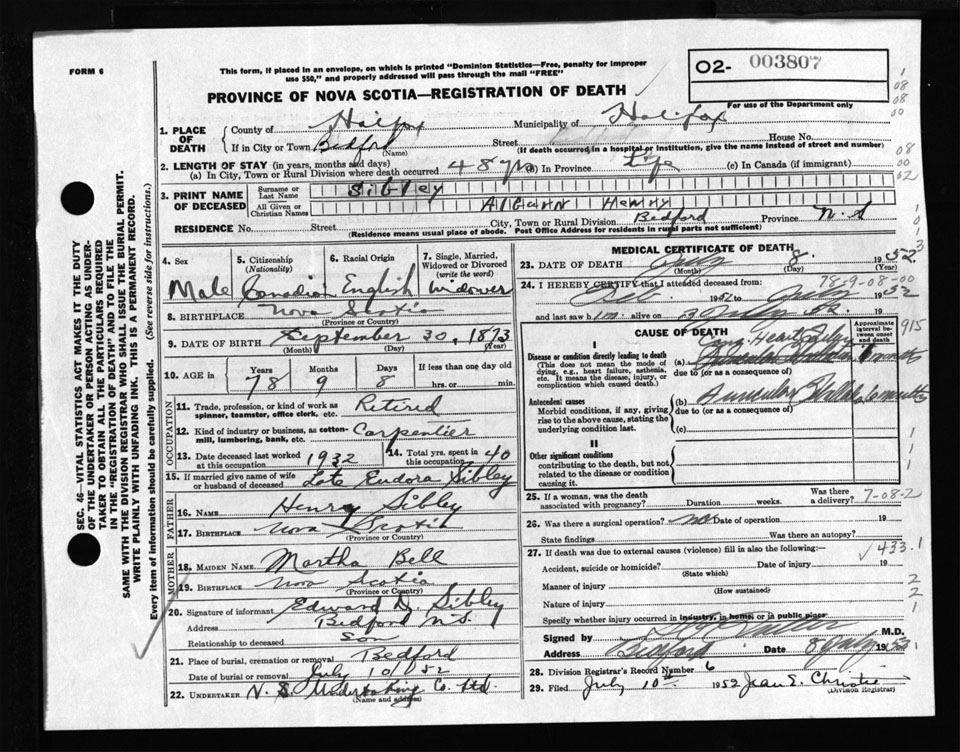 FORM 6
This form, if placed in an envelope, on which is printed "Dominion Statistics—Free, penalty for improper
use $50," and properly addressed will pass through the mail "FREE"
02- 003807
For use of the Department only
PROVINCE OF NOVA SCOTIA—REGISTRATION OF DEATH
1. PLACE OF DEATH
County of Halifax Municipality of Halifax
If in City or Town Bedford (Name) Street House No.
(If death occurred in a hospital or institution, give the name instead of street and number)
2. LENGTH OF STAY (in years, months and days)
(a) In City, Town or Rural Division where death occurred 48 yrs (b) In Province Life (c) In Canada (if immigrant)
3. PRINT NAME OF DECEASED
Surname or Last Name Sibley
All Given or Christian Names Henry
RESIDENCE No. Street City, Town or Rural Division Bedford Province N.S
(Residence means usual place of abode. Post Office Address for residents in rural parts not sufficient)
4. Sex Male
5. Citizenship (Nationality) Canadian
6. Racial Origin English
7. Single, Married, Widowed or Divorced (write the word) Widower
8. BIRTHPLACE Nova Scotia
(Province or Country)
9. DATE OF BIRTH September 30, 1873
(Month) (Day) (Year)
10. AGE in Years 78 Months 9 Days 8 If less than one day
hrs. or min.
OCCUPATION
11. Trade, profession, or kind of work as spinner, teamster, office clerk, etc. Retired
12. Kind of industry or business, as cotton-mill, lumbering, bank, etc. Carpentier
13. Date deceased last worked at this occupation 1932
14. Total yrs. spent in this occupation 40
15. If married give name of wife or husband of deceased Late Eudora Sibley
FATHER
16. Name Henry Sibley
17. Birthplace Nova Scotia
(Province or Country)
MOTHER
18. Maiden Name Martha Bell
19. Birthplace Nova Scotia
(Province or Country)
20. Signature of informant Edward D. Sibley
Address Bedford N.S.
Relationship to deceased Son
21. Place of burial, cremation or removal Bedford
Date of burial or removal July 10 1952
22. Undertaker N. S. Undertaking Co. Ltd.
(Name and address)
MEDICAL CERTIFICATE OF DEATH
23. DATE OF DEATH July 8. 1952.
(Month) (Day) (Year)
24. I HEREBY CERTIFY that I attended deceased from: 7829-08-00
Feb. 1952 to July 1952
and last saw him alive on 3 July 52
CAUSE OF DEATH
Approximate interval between onset and death
915
I
Disease or condition directly leading to death
(This does not mean the mode of dying, e.g., heart failure, asthenia, etc. It means the disease, injury, or complication which caused death.)
(a) Cong. Heart Failure
due to (or as a consequence of)
Antecedent causes
Morbid conditions, if any, giving rise to the above cause, stating the underlying condition last.
(b) Auricular
due to (or as a consequence of)
(c)
II
Other significant conditions
contributing to the death, but not related to the disease or condition causing it.
25. If a woman, was the death associated with pregnancy? Duration weeks. Was there a delivery? 7-08-2
26. Was there a surgical operation? no Date of operation 19
State findings Was there an autopsy?
27. If death was due to external causes (violence) fill in also the following: 433.1
Accident, suicide or homicide? Date of injury 19
(State which)
Manner of injury
(How sustained)
Nature of injury
Specify whether injury occurred in industry, in home, or in public place
Signed by M.D.
Address Bedford Date 8 July 1952
28. Division Registrar's Record Number 6
29. Filed July 10th 1952 Jean E. Christie
(Division Registrar)
SEC. 46—VITAL STATISTICS ACT MAKES IT THE DUTY
OF THE UNDERTAKER OR PERSON ACTING AS UNDER-
TAKER TO OBTAIN ALL THE PARTICULARS REQUIRED
IN THE "REGISTRATION OF DEATH" AND TO FILE THE
SAME WITH THE DIVISION REGISTRAR WHO SHALL ISSUE THE BURIAL PERMIT.
WRITE PLAINLY WITH UNFADING INK. THIS IS A PERMANENT RECORD.
Every item of information should be carefully supplied. (See reverse side for instructions.)